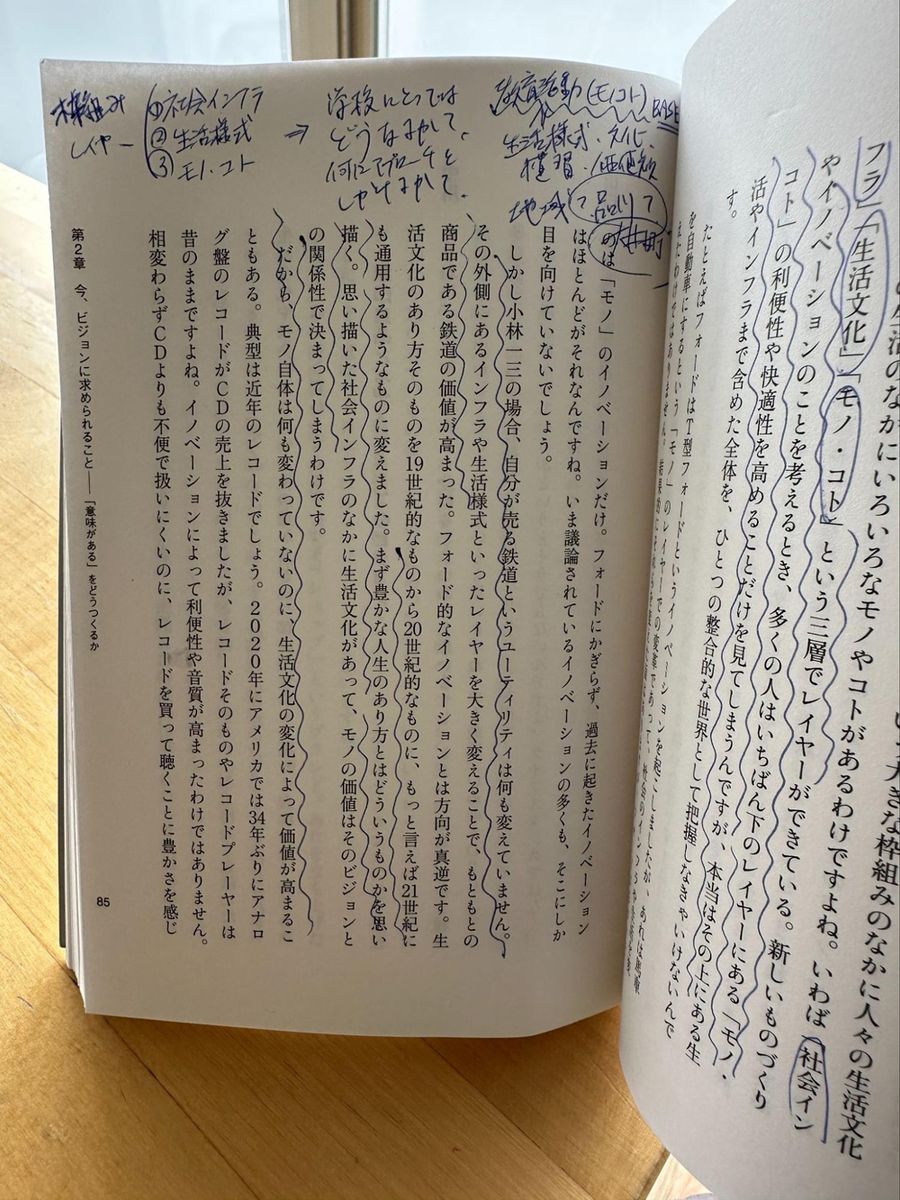 大きな枠組みのなかに人々の生活文化
の生活のなかにいろいろなモノやコトがあるわけですよね。いわば「社会イン
フラ」「生活文化」「モノ・コト」という三層でレイヤーができている。新しいものづくり
やイノベーションのことを考えるとき、多くの人はいちばん下のレイヤーにある「モノ・
コト」の利便性や快適性を高めることだけを見てしまうんですが、本当はその上にある生
活やインフラまで含めた全体を、ひとつの整合的な世界として把握しなきゃいけないんで
す。
たとえばフォードはT型フォードというイノベーションを起こしましたが、あれは馬車
を自動車にするという「モノ」のレイヤーでの変革であって、社会のインフラや生活様式を
えたわけではありません。結果的に
枠組み
レイヤー
①社会インフラ
②生活様式
③モノ・コト
⇒
学校にとっては
どうなるかして、
教育活動(モノコト) BASE
生活様式・文化
慣習・価値観
地域 で品川で
のは
「モノ」のイノベーションだけ。フォードにかぎらず、過去に起きたイノベーション
はほとんどがそれなんですね。いま議論されているイノベーションの多くも、そこにしか
目を向けていないでしょう。
しかし小林一三の場合、自分が売る鉄道というユーティリティは何も変えていません。
その外側にあるインフラや生活様式といったレイヤーを大きく変えることで、もともとの
商品である鉄道の価値が高まった。フォード的なイノベーションとは方向が真逆です。生
活文化のあり方そのものを19世紀的なものから20世紀的なものに、もっと言えば21世紀に
も通用するようなものに変えました。まず豊かな人生のあり方とはどういうものかを思い
描く。思い描いた社会インフラのなかに生活文化があって、モノの価値はそのビジョンと
の関係性で決まってしまうわけです。
だから、モノ自体は何も変わっていないのに、生活文化の変化によって価値が高まるこ
ともある。典型は近年のレコードでしょう。2020年にアメリカでは34年ぶりにアナロ
グ盤のレコードがCDの売上を抜きましたが、レコードそのものやレコードプレーヤーは
昔のままですよね。イノベーションによって利便性や音質が高まったわけではありません。
相変わらずCDよりも不便で扱いにくいのに、レコードを買って聴くことに豊かさを感じ
第2章 今、ビジョンに求められること——「意味がある」をどうつくるか
85